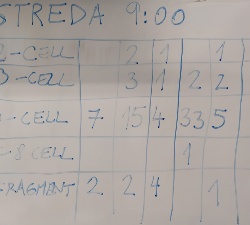 STREDA 9:00
2-CELL 2 1 1
3-CELL 3 1 2 2
-CELL 7 15 4 33 5
-8 CELL 1
FRAGMANT 2 2 4 1